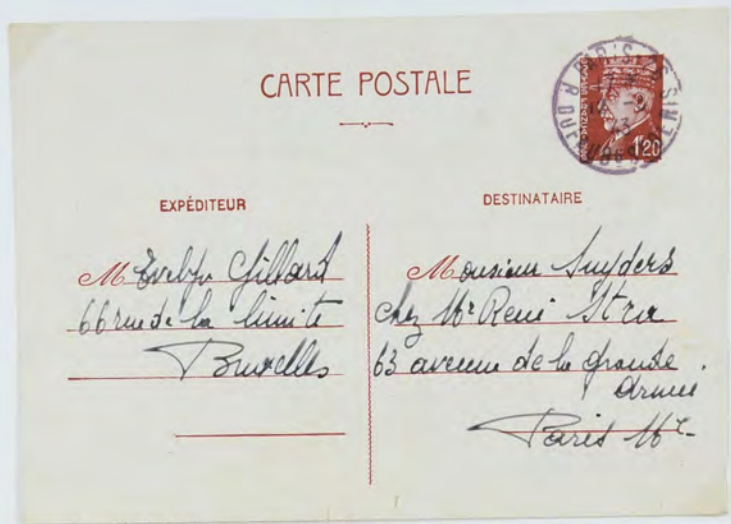 CARTE POSTALE
1F20
EXPÉDITEUR
M Evelyn Gillard
66 rue de la limite
Bruxelles
DESTINATAIRE
Monsieur Snyders
chez Mr René
63 avenue de la grande
Armée
Paris 16e